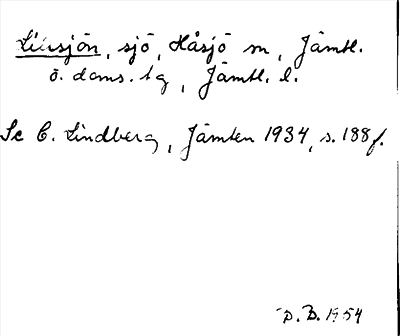 Lillsjön, sjö, Håsjö sn, Jämtl.
ö. doms. tg, Jämtl. l.
Se C. Lindberg, Jämten 1934, s. 188 f.
D. B. 1954